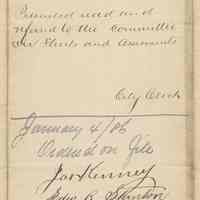 Presented read and
referred to the Committee
on Streets and Assessments
City Clerk
January 4/06
Ordered on File
Jas Kenney
Edw. R. Stanton